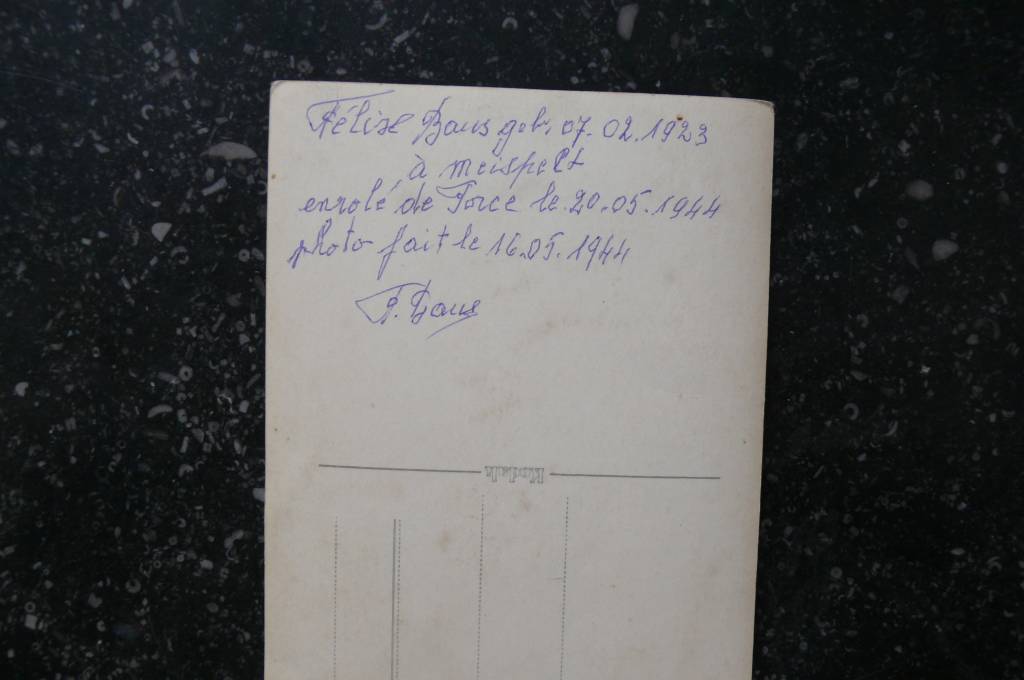 Félix Baus geb. 07.02.1923
à meispelt
enrolé de Force le 20.05.1944
photo fait le 16.05.1944
F. Baus
Kodak